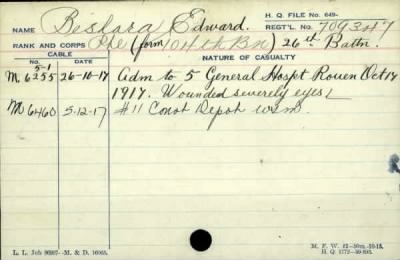 H. Q. FILE No. 649-
NAME Beshara Edward. REGT'L. No. 709347
RANK AND CORPS Pte (form 104th Bn) 26th Battn.
CABLE NATURE OF CASUALTY
No. DATE
5-1
M 6255 26-10-17 Adm to 5 General Hospt Rouen Oct 17
1917. Wounded severely eyes
M 6460 5-12-17 #11 Const Depot
L. L. Job 8-M. & D.
M. F. W. 42-50m.-10-15.
H. Q. 1772-39-893.